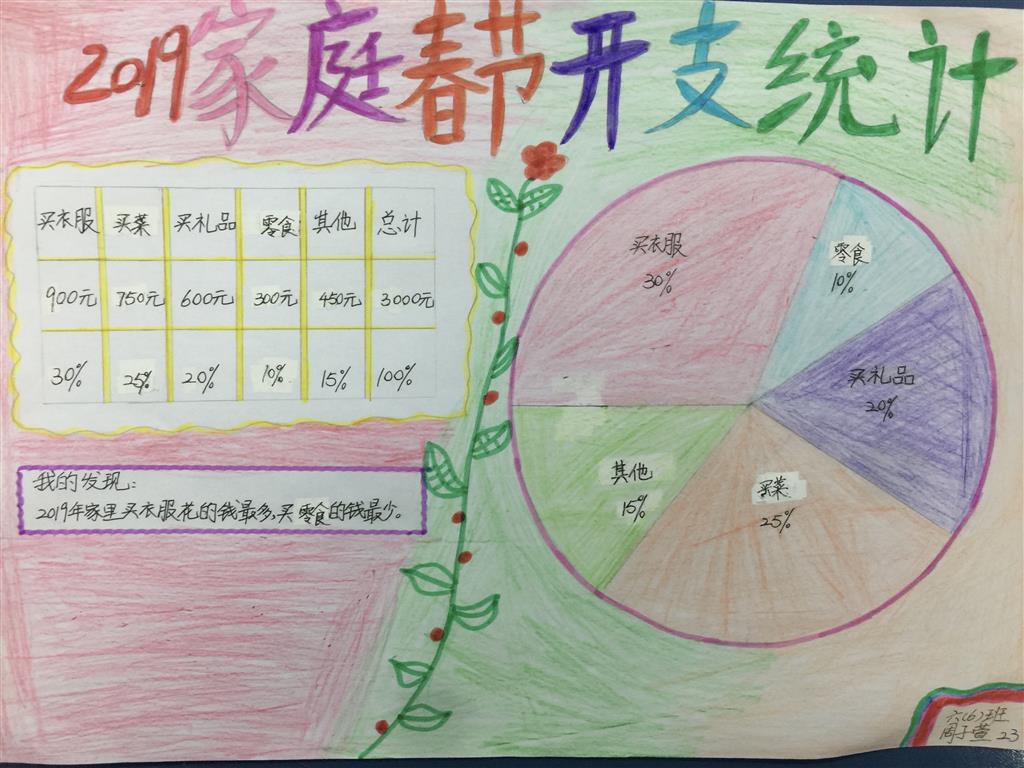 2019家庭春节开支统计
买衣服 买菜 买礼品 零食 其他 总计
900元 750元 600元 300元 450元 3000元
30% 25% 20% 10% 15% 100%
我的发现:
2019年家里买衣服花的钱最多,买零食的钱最少。
买衣服
30%
零食
10%
买礼品
20%
其他
15%
买菜
25%
六(6)班
周子萱 23